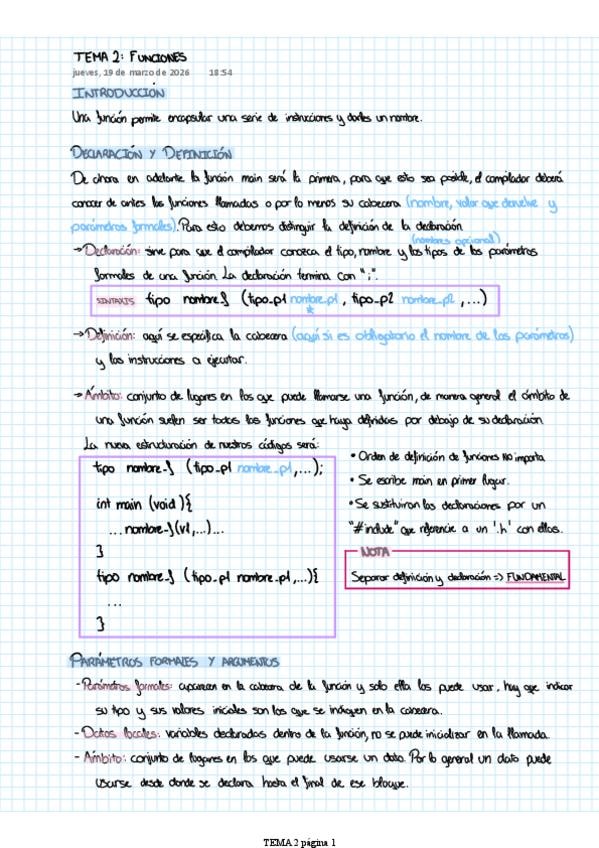 TEMA 2: FUNCIONES
jueves, 19 de marzo de 2026 18:54
INTRODUCCIÓN
Una función permite encapsular una serie de instrucciones y darles un nombre.
DECLARACIÓN Y DEFINICIÓN
De ahora en adelante la función main será la primera, para que esto sea posible, el compilador deberá
conocer de antes las funciones llamadas o por lo menos su cabecera (nombre, valor que devuelve y
parámetros formales). Para esto debemos distinguir la definición de la declaración
(nombres opcional)
→ Declaración: sirve para que el compilador conozca el tipo, nombre y los tipos de los parámetros
formales de una función. La declaración termina con ";".
SINTAXIS tipo nombre_f (tipo_p1 nombre_p1, tipo_p2 nombre_p2, ...)
*
→ Definición: aquí se especifica la cabecera (aquí si es obligatorio el nombre de los parámetros)
y las instrucciones a ejecutar.
→ Ámbito: conjunto de lugares en los que puede llamarse una función, de manera general el ámbito de
una función suelen ser todas las funciones que haya definidas por debajo de su declaración
La nueva estructuración de nuestros códigos será:
tipo nombre_f (tipo_p1 nombre_p1,...);
int main (void){
...nombre_f(v1,...)...
}
tipo nombre_f (tipo_p1 nombre_p1,...){
...
}
• Orden de definición de funciones NO importa
• Se escribe main en primer lugar.
• Se sustituiran las declaraciones por un
"#include" que referencie a un '.h' con ellas.
NOTA
Separar definición y declaración => FUNDAMENTAL
PARÁMETROS FORMALES Y ARGUMENTOS
- Parámetros formales: aparecen en la cabecera de la función y solo ella los puede usar, hay que indicar
su tipo y sus valores iniciales son los que se indiquen en la cabecera.
- Datos locales: variables declaradas dentro de la función, no se puede inicializar en la llamada.
- Ámbito: conjunto de lugares en los que puede usarse un dato. Por lo general un dato puede
usarse desde donde se declara hasta el final de ese bloque.
TEMA 2 página 1